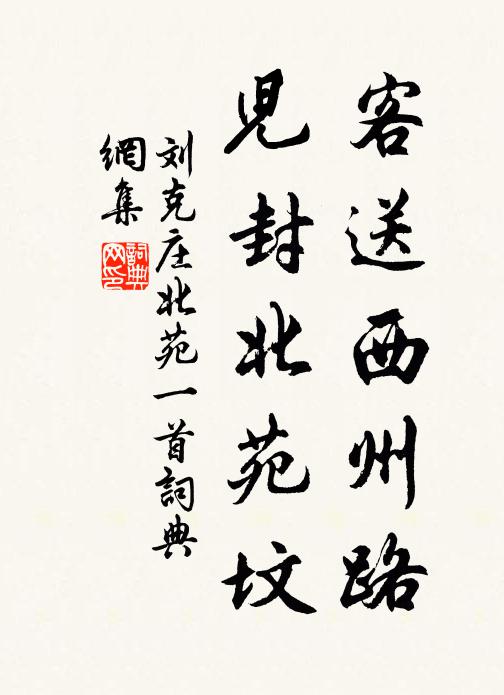 客送西州路
兒封北苑坟
刘克庄北苑一首詞典
網集
詞典
网印